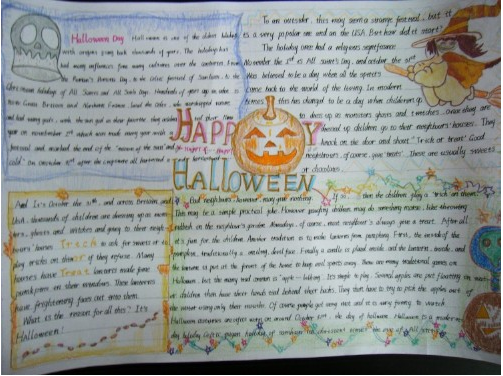 Halloween Day Halloween is one of the oldest holidays
with origins going back thousands of years. The holiday has
had many influences from many cultures over the centuries. From
the Roman's Pomona Day, to the Celtic festival of Samhain, to the
Christian holidays of All Saints and All Souls Days. Hundreds of years ago in what is
now Great Britain and Northern France, lived the Celts. who worshipped nature
and had many gods, with the sun god as their favorite
year on november 1st which was made many year
and marked the end of the "season of the sun" and
cold. On October 31st after the crops were all harvested
To an outsider, this may seem a strange festival, but it
is a very popular one and on the USA. But how did it start?
The holiday once had a religious significance.
November the 1st is All Saint's Day, and october the 31st
was believed to be a day when all the spirits
came back to the world of the living. In modern
times, this has changed to be a day when children
to dress up as monsters ghosts and witches. once they are
dressed up children go to their neighbours' houses. They
knock on the door and shout "Trick or treat". Good
neighbours, of course, give treats. These are usually sweets
or chocolates.
HAPPY
HALLOWEEN
And It's October the 31st, and across Britain and
USA, thousands of children are dressing up as mons-
ters, ghosts and witches and going to their neigh-
bours' houses Trick to ask for sweets or to
play tricks on them or if they refuse. Many
houses have Treat lanterns made from
pumpkins on their windows. These lanterns
have frightening faces cut into them.
What is the reason for all this? It's
Halloween!
Bad neighbours, however, may give nothing. If so, then the children play "a trick on them".
This may be a simple practical joke. However naughty children may do something worse, like throwing
rubbish on the neighbour's garden. Nowadays, of course, most neighbours always give a treat. After all
it's fun for the children. Another tradition is to make lanterns from pumpkins. First, the inside of the
pumpkin, traditionally a smiling devil face. Finally a candle is placed inside and the lantern inside, and
the lantern is put at the front of the home to hide evil spirits away. There are many traditional games on
Halloween, but the many well known is "apple-bobbing". It's simple to play. Several apples are put floating in water
or children then have their hands tied behind their backs. They then have to try to pick the apples out of
the water using only their mouths. Of course people get very wet and it is very funny to watch.
Halloween costumes are often worn on around October 31st, the day of halloween. Halloween is a modern-
day holiday